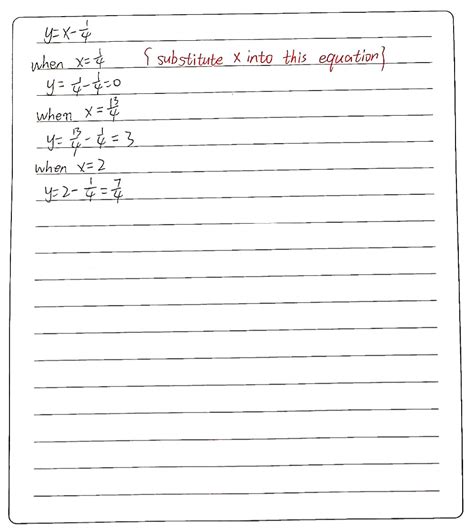 y=x-1/4
when x=1/4 {substitute x into this equation}
y=1/4-1/4=0
when x=13/4
y=13/4-1/4=3
when x=2
y=2-1/4=7/4